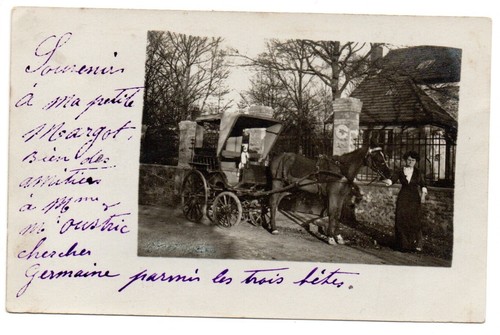 Souvenir
à ma petite
Margot.
Bien des
amitiés
à Mme
Mr Oustric
chercher
Germaine parmis les trois bêtes.